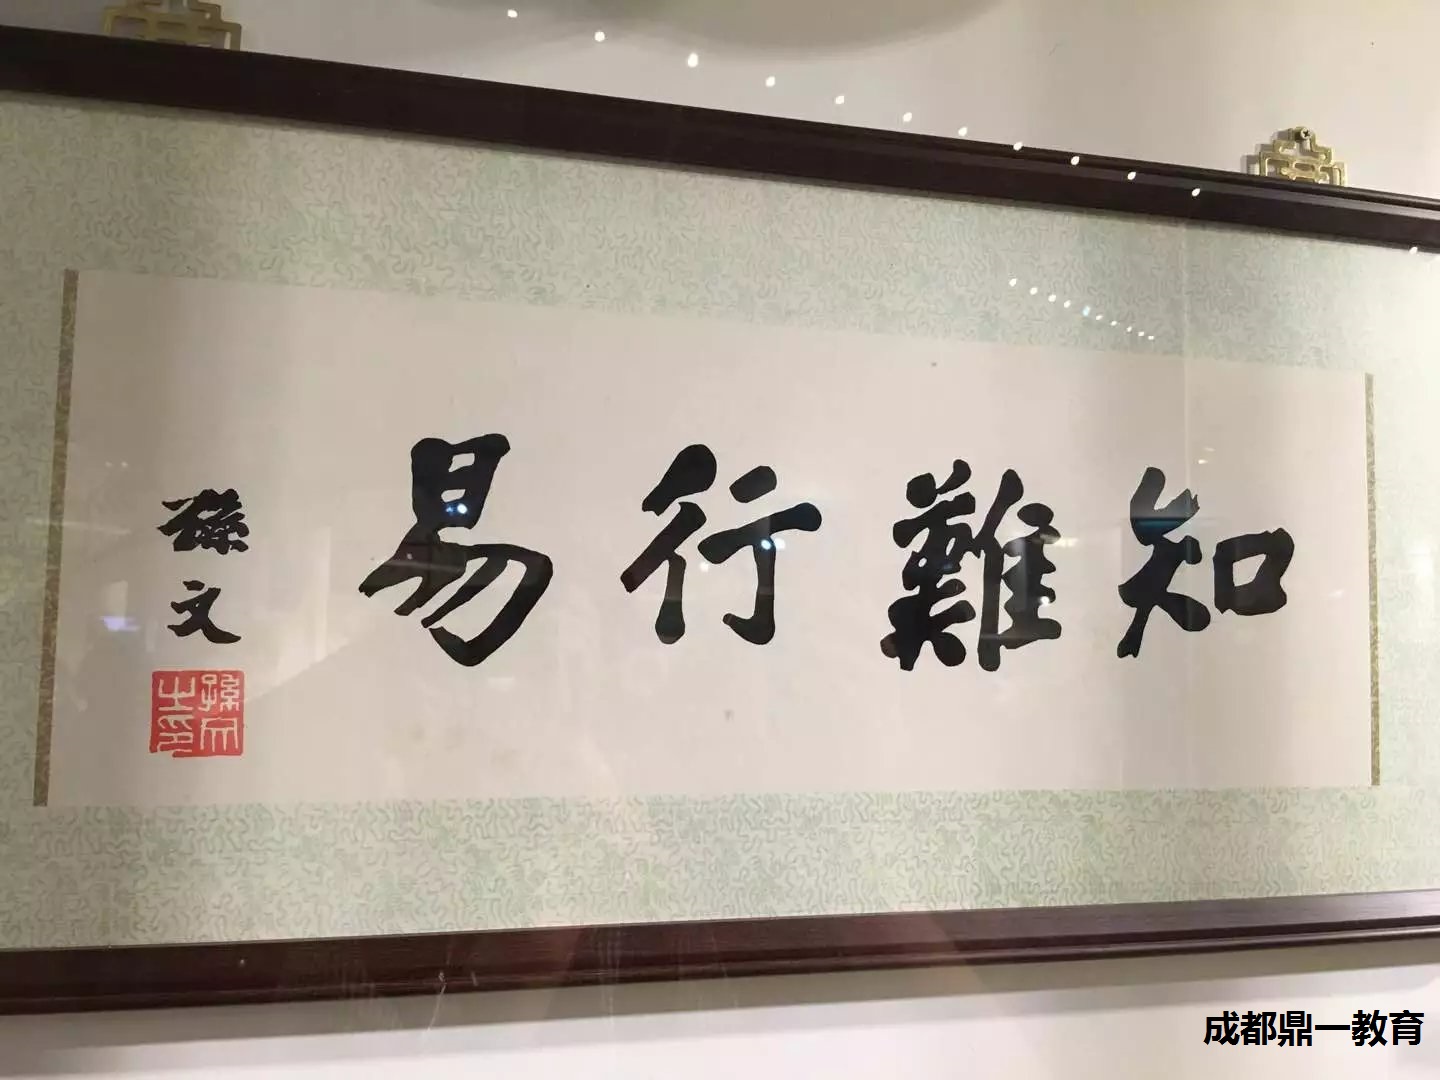 知難行易
孫文
孫文之印
成都鼎一教育